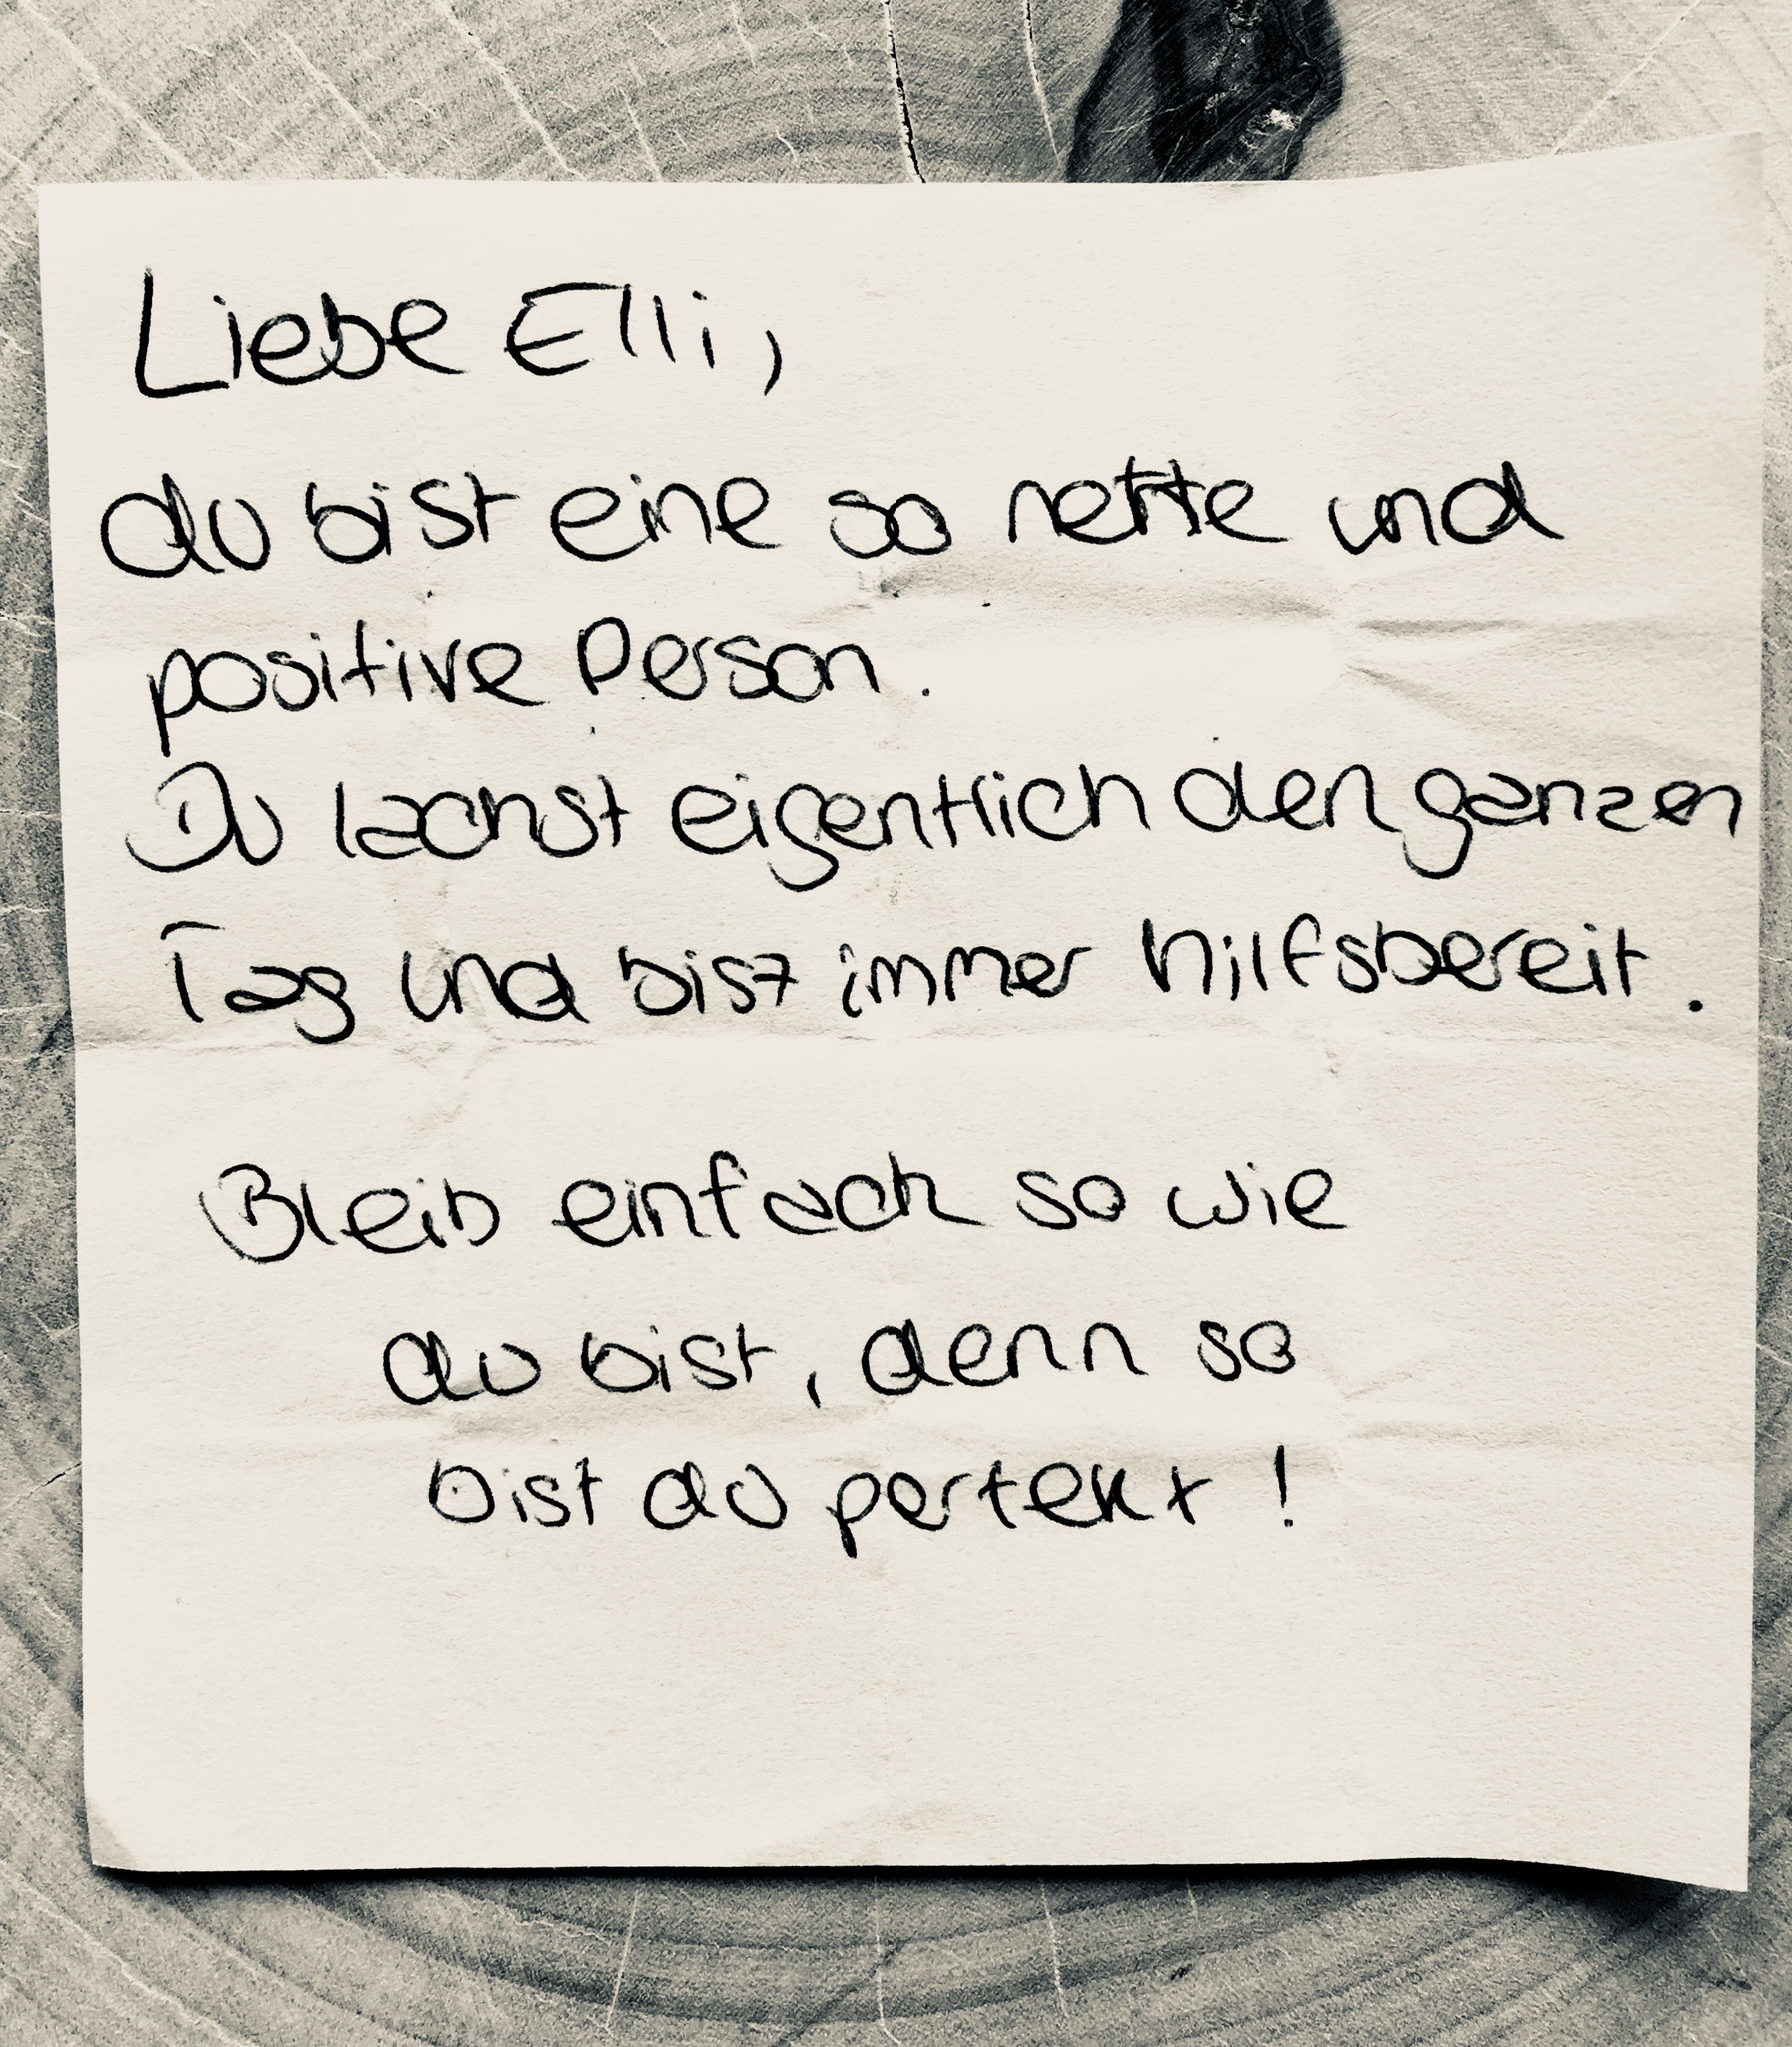 Liebe Elli,
du bist eine so nette und
positive Person.
Du lachst eigentlich den ganzen
Tag und bist immer hilfsbereit.
Bleib einfach so wie
du bist, denn so
bist du perfekt!